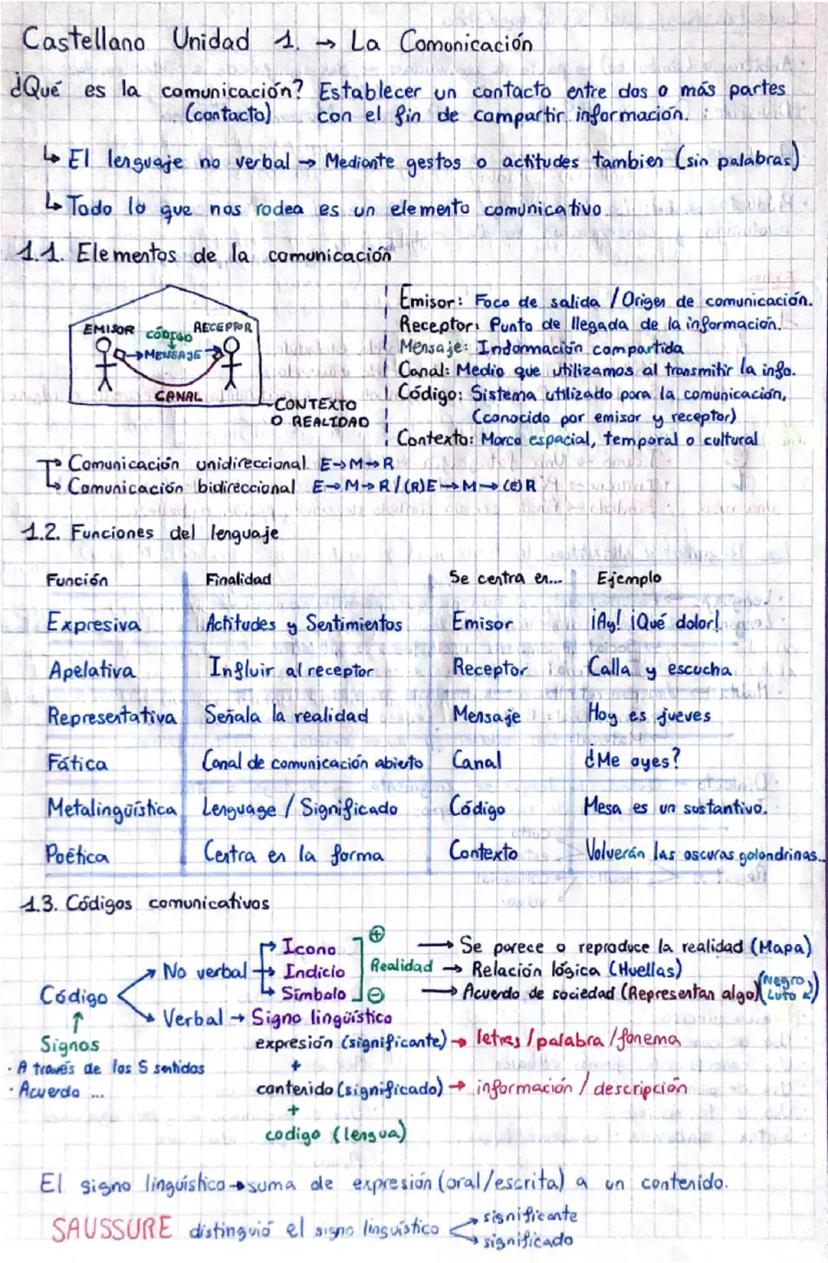 Castellano Unidad 1. → La Comunicación
¿Qué es la comunicación? Establecer un contacto entre dos o más partes
(contacto) con el fin de compartir información.
↳ El lenguaje no verbal → Mediante gestos o actitudes tambien (sin palabras)
↳ Todo lo que nos rodea es un elemento comunicativo
1.1. Elementos de la comunicación
EMISOR CÓDIGO RECEPTOR
→ MENSAJE →
CANAL
CONTEXTO
O REALIDAD
Emisor: Foco de salida / Origen de comunicación.
Receptor: Punto de llegada de la información.
Mensaje: Indormación compartida
Canal: Medio que utilizamos al transmitir la info.
Código: Sistema utilizado para la comunicación,
(conocido por emisor y receptor)
Contexto: Marco espacial, temporal o cultural
→ Comunicación unidireccional E→M→R
↳ Comunicación bidireccional E→M→R/(R)E→M→(E)R
1.2. Funciones del lenguaje
Función Finalidad Se centra en... Ejemplo
Expresiva Actitudes y Sentimientos Emisor ¡Ay! ¡Qué dolor!
Apelativa Influir al receptor Receptor Calla y escucha
Representativa Señala la realidad Mensaje Hoy es jueves
Fática Canal de comunicación abierto Canal ¿Me oyes?
Metalingüística Lenguage / Significado Código Mesa es un sustantivo.
Poética Centra en la forma Contexto Volverán las oscuras golondrinas...
1.3. Códigos comunicativos
Código
↑
Signos
· A través de los 5 sentidos
· Acuerdo ...
→ No verbal
→ Icono ⊕ → Se parece o reproduce la realidad (Mapa)
→ Indicio Realidad → Relación lógica (Huellas)
↳ Símbolo ⊖ → Acuerdo de sociedad (Representan algo) (Negro Luto)
→ Verbal → Signo lingüístico
expresión (significante) → letras/palabra/fonema
+
contenido (significado) → información / descripción
+
codigo (lengua)
El signo linguístico → suma de expresión (oral/escrita) a un contenido.
SAUSSURE distinguió el signo linguístico
→ significante
→ significado